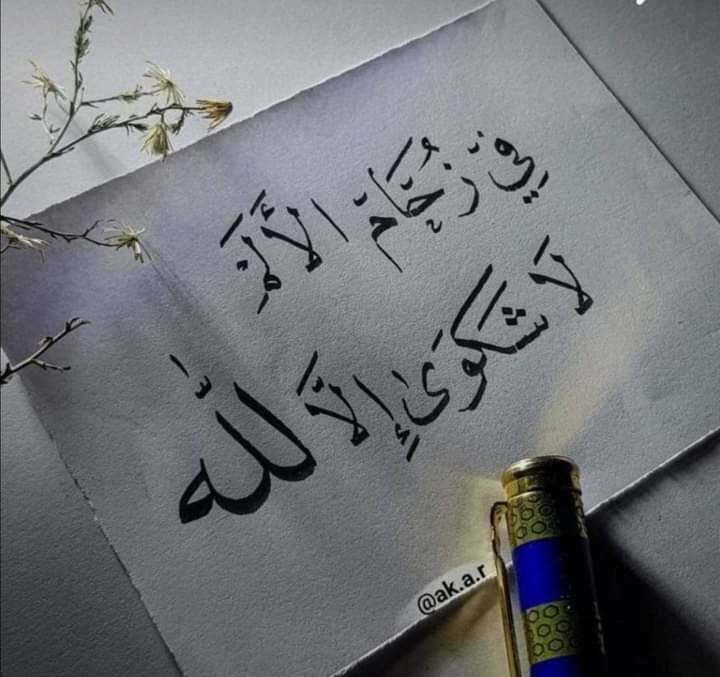 فِيّ زُحَامّ الأَلَمْ
لَا شَكوَىٰ إِلَّا لله
@ak.a.r